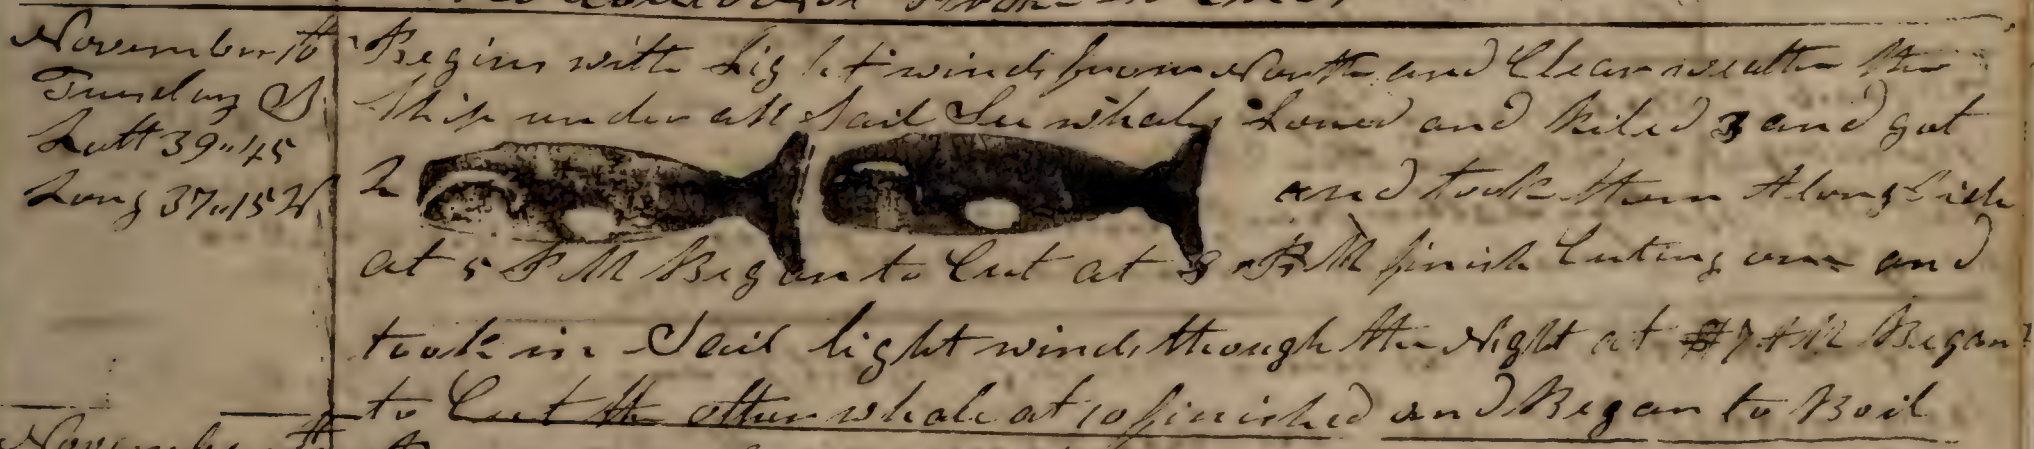 November 16
Tuesday
Latt 39"45
Long 37"15 W
Begins with Light winds from North and Clear weather the
Ship under all Sail See whales Lowed and kiled 3 and got
2 and took them Alongside
at 5 PM Began to Cut at 8 PM finish Cuting one and
took in Sail light winds through the Night at 7 AM Began
to Cut the other whale at 10 finished and Began to Boil
November